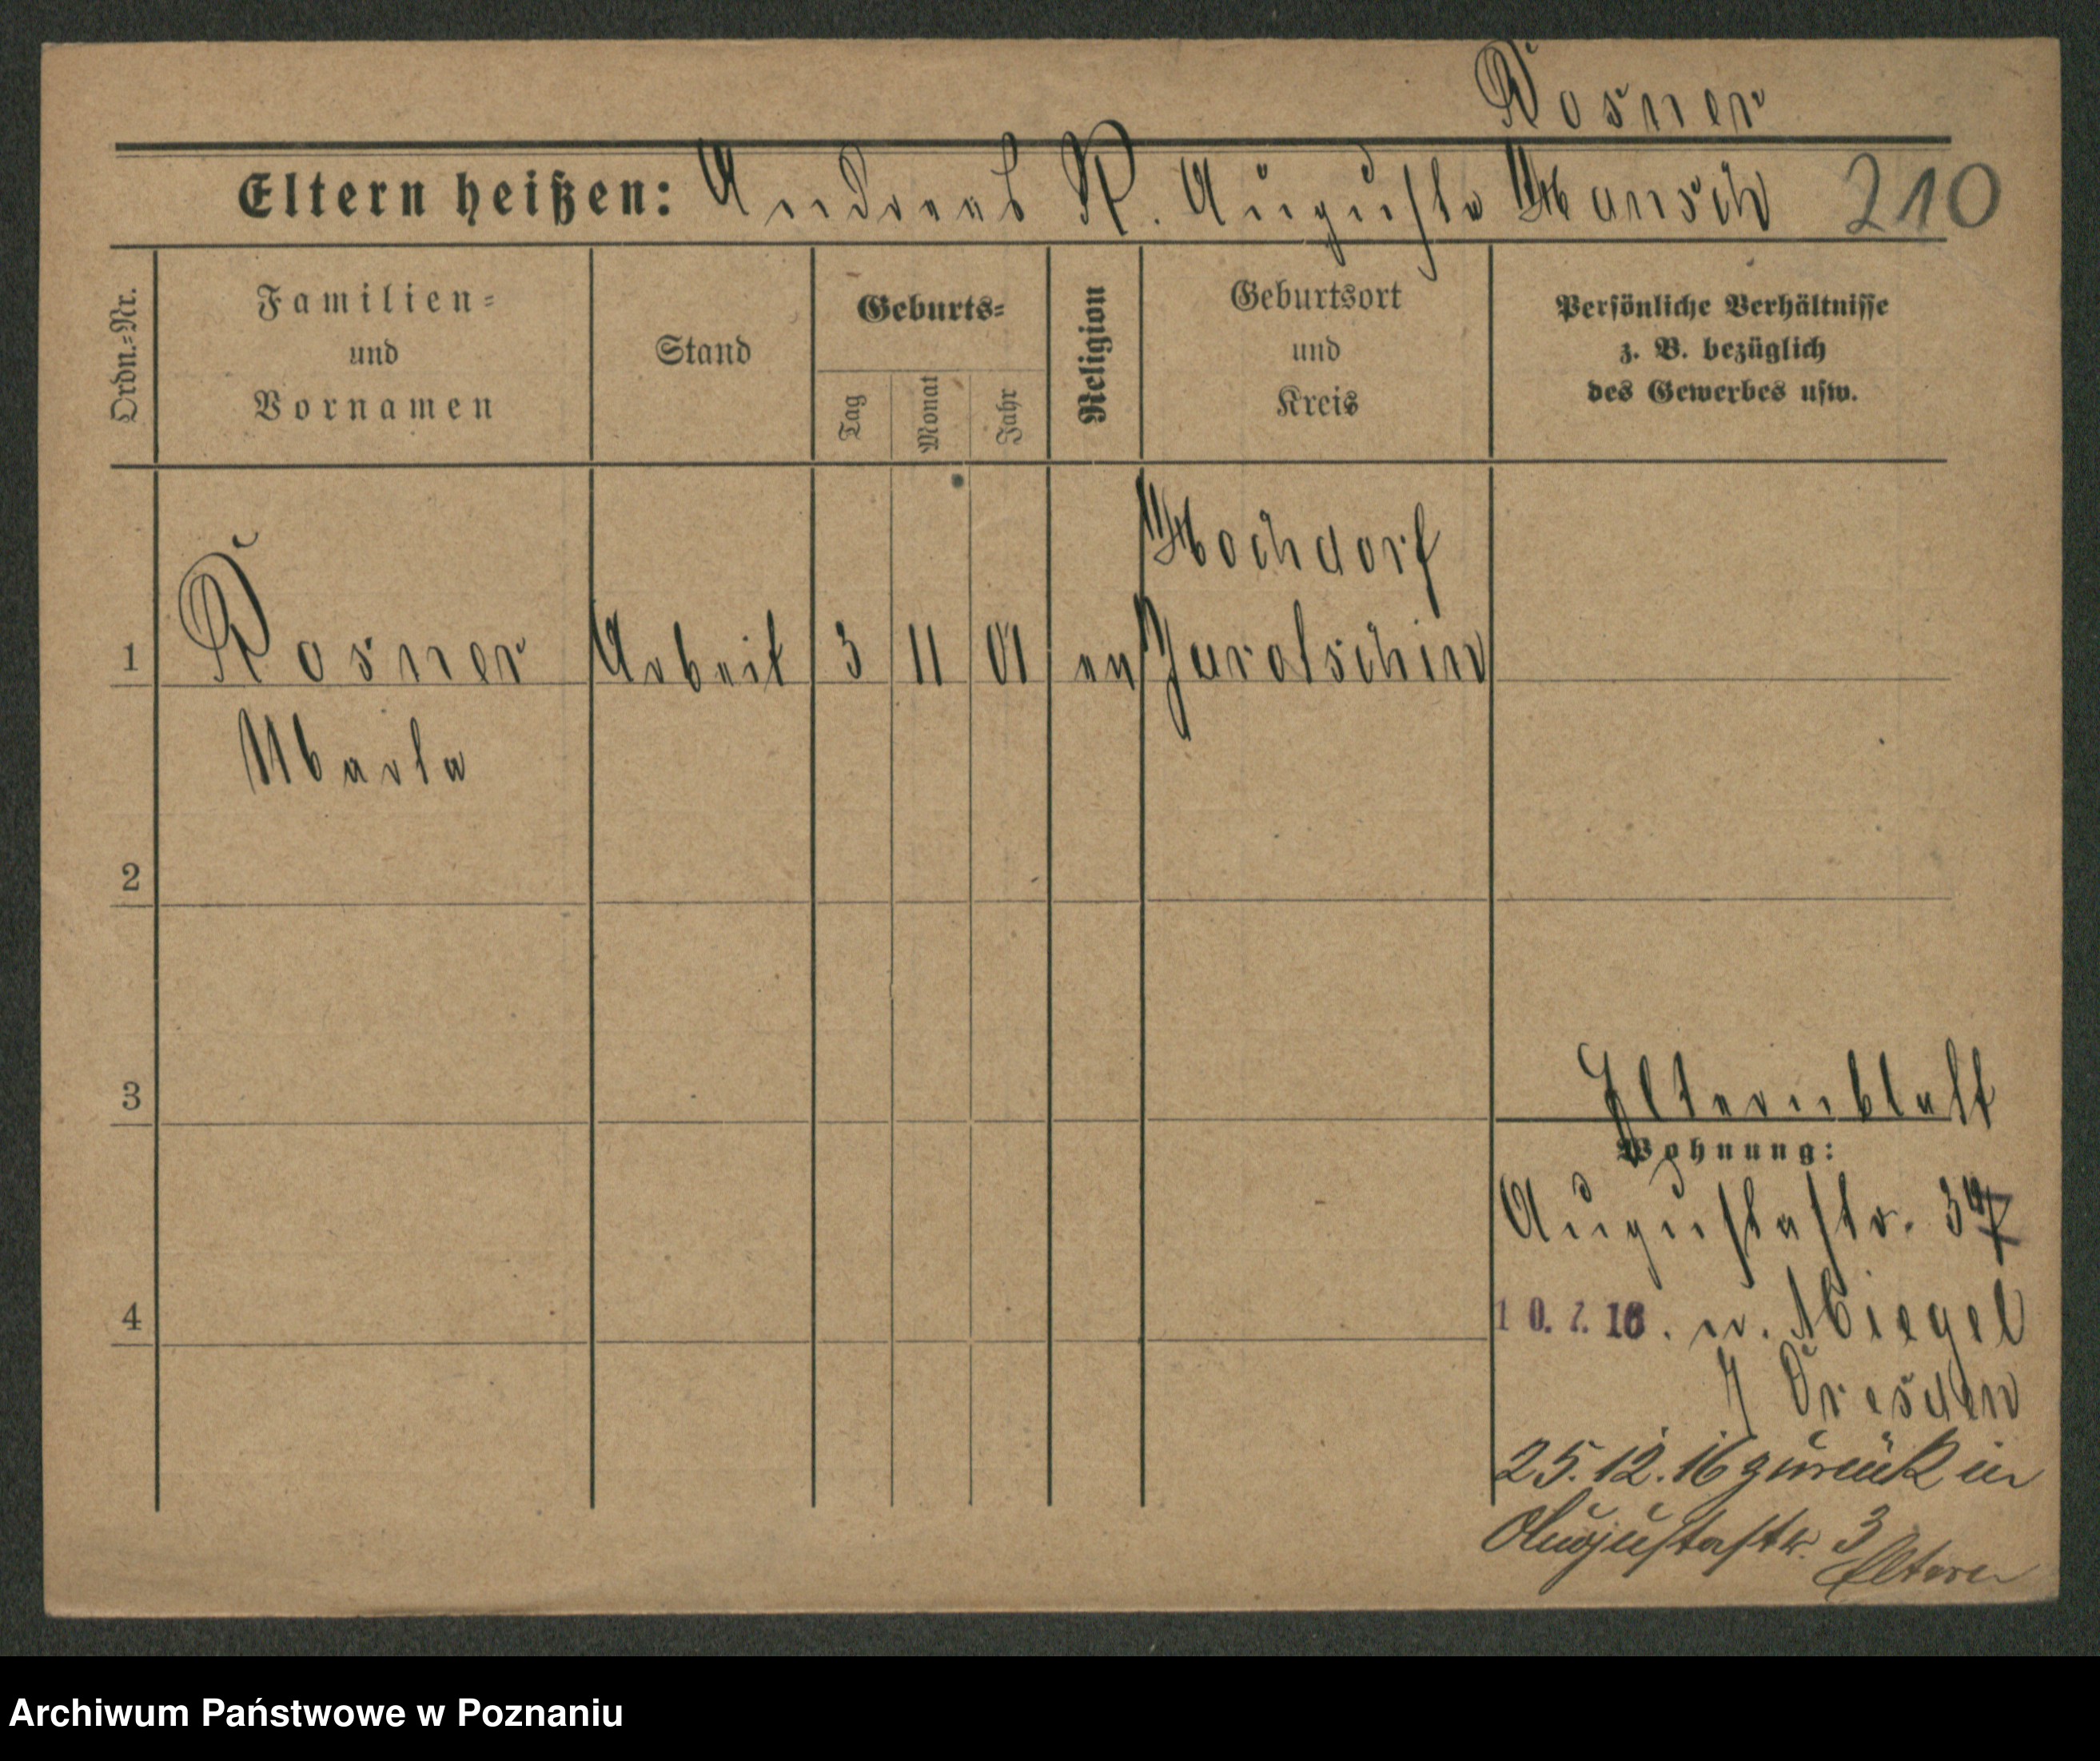 Rosner
Eltern heißen: Andreas R. Auguste Hansch 210
Ordn.=Nr.
Familien=
und
Vornamen
Stand
Geburts=
Tag
Monat
Jahr
Religion
Geburtsort
und
Kreis
Persönliche Verhältnisse
z. B. bezüglich
des Gewerbes usw.
Hochdorf
1 Rosner Arbeit 3 11 01 ev Jarotschin
Marta
2
3
Elternblatt
Wohnung:
Augustastr.
4
10. 7. 16. n.
Dresden
25.12.16 zurück in
Augustastr. 3
Eltern
Archiwum Państwowe w Poznaniu